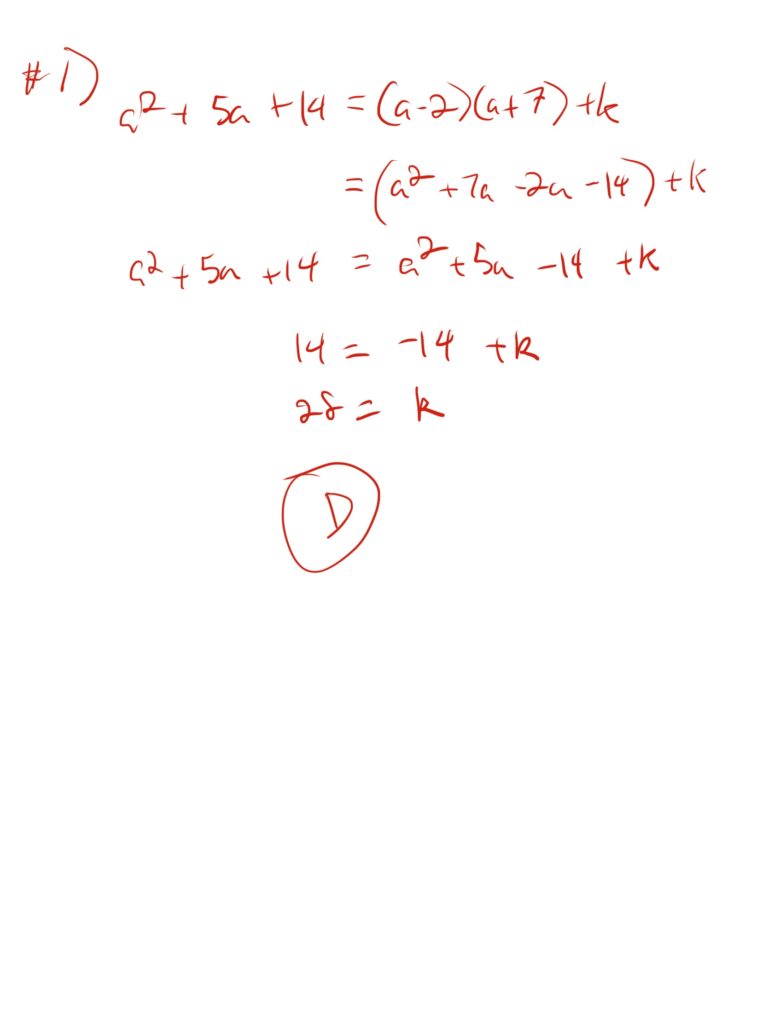 #1)
a² + 5a + 14 = (a-2)(a+7) + k
= (a² + 7a - 2a - 14) + k
a² + 5a + 14 = a² + 5a - 14 + k
14 = -14 + k
28 = k
D